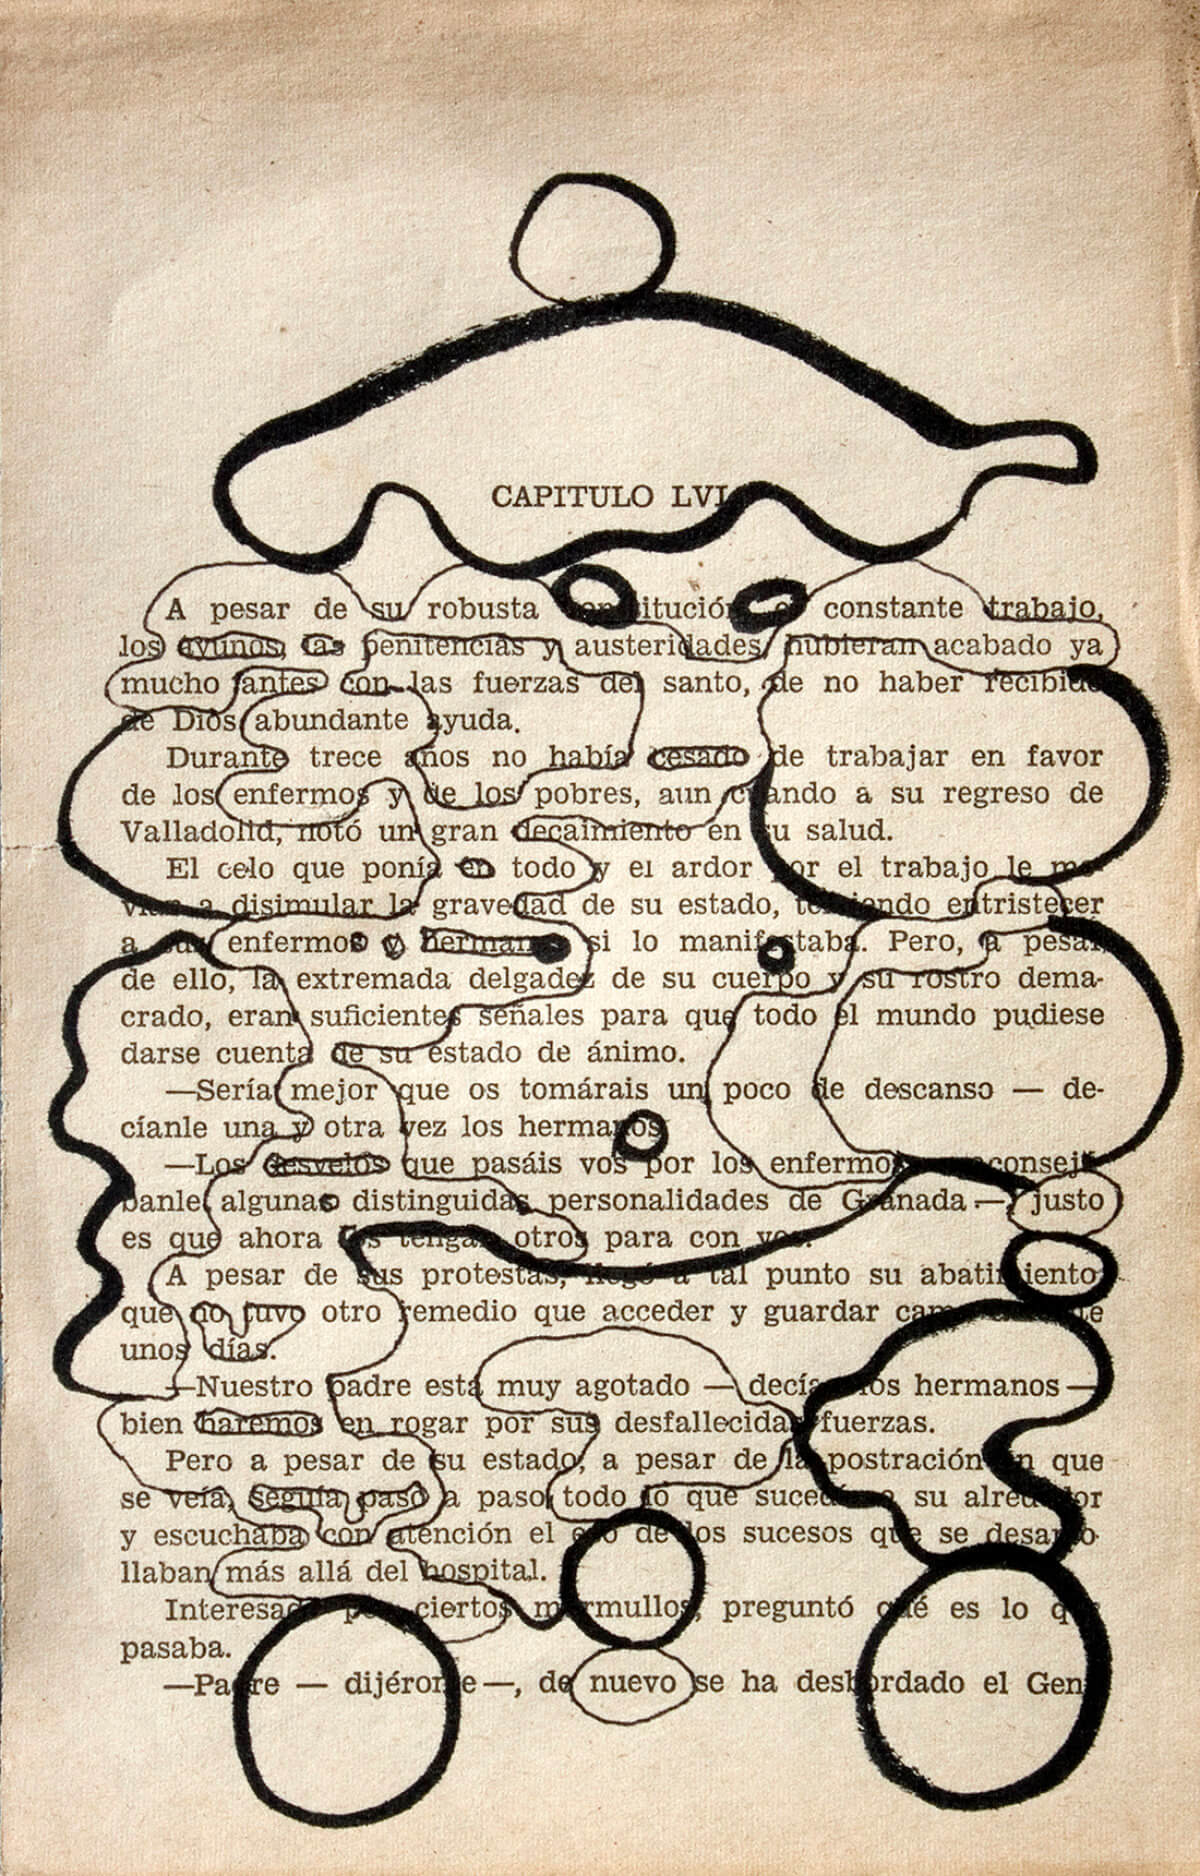 CAPITULO LVI
A pesar de su robusta constitución el constante trabajo,
los ayunos, las penitencias y austeridades, hubieran acabado ya
mucho antes con las fuerzas del santo, de no haber recibido
de Dios abundante ayuda.
Durante trece años no había cesado de trabajar en favor
de los enfermos y de los pobres, aun cuando a su regreso de
Valladolid, notó un gran decaimiento en su salud.
El celo que ponía en todo y el ardor por el trabajo le mo-
vían a disimular la gravedad de su estado, temiendo entristecer
a sus enfermos y hermanos si lo manifestaba. Pero, a pesar
de ello, la extremada delgadez de su cuerpo y su rostro dema-
crado, eran suficientes señales para que todo el mundo pudiese
darse cuenta de su estado de ánimo.
—Sería mejor que os tomárais un poco de descanso — de-
cíanle una y otra vez los hermanos.
—Los desvelos que pasáis vos por los enfermos — aconsejá-
banle algunas distinguidas personalidades de Granada —, justo
es que ahora los tengan otros para con vos.
A pesar de sus protestas, llegó a tal punto su abatimiento
que no tuvo otro remedio que acceder y guardar cama durante
unos días.
—Nuestro padre está muy agotado — decían los hermanos —
bien haremos en rogar por sus desfallecidas fuerzas.
Pero a pesar de su estado, a pesar de la postración en que
se veía, seguía paso a paso todo lo que sucedía a su alrededor
y escuchaba con atención el eco de los sucesos que se desarro-
llaban más allá del hospital.
Interesado por ciertos murmullos, preguntó qué es lo que
pasaba.
—Padre — dijéronle —, de nuevo se ha desbordado el Genil